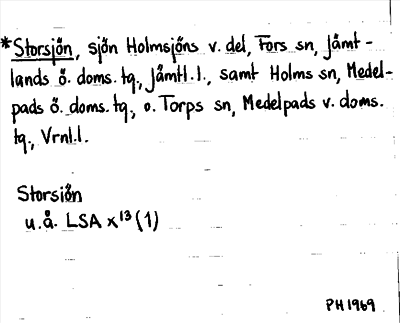 *Storsjön, sjön Holmsjöns v. del, Fors sn, Jämt-
lands ö. doms. tg., Jämtl. l., samt Holms sn, Medel-
pads ö. doms. tg., o. Torps sn, Medelpads v. doms.
tg., Vrnl. l.
Storsiön
u.å. LSA x¹³ (1)
PH 1969